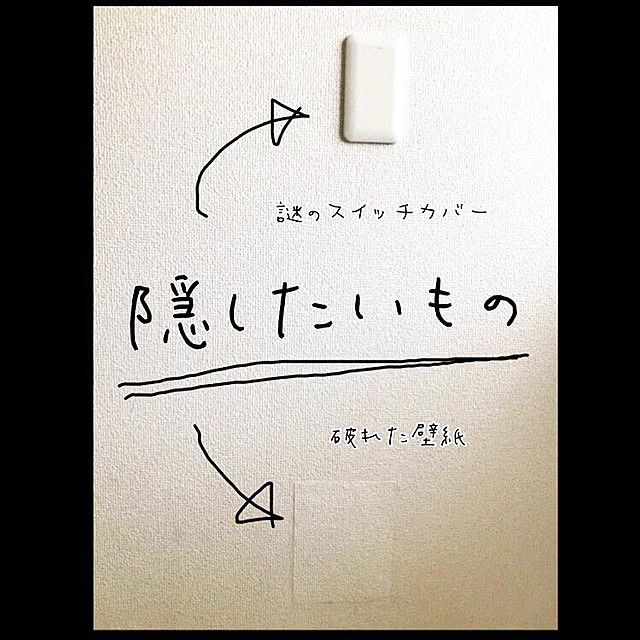 謎のスイッチカバー
隠したいもの
破れた壁紙